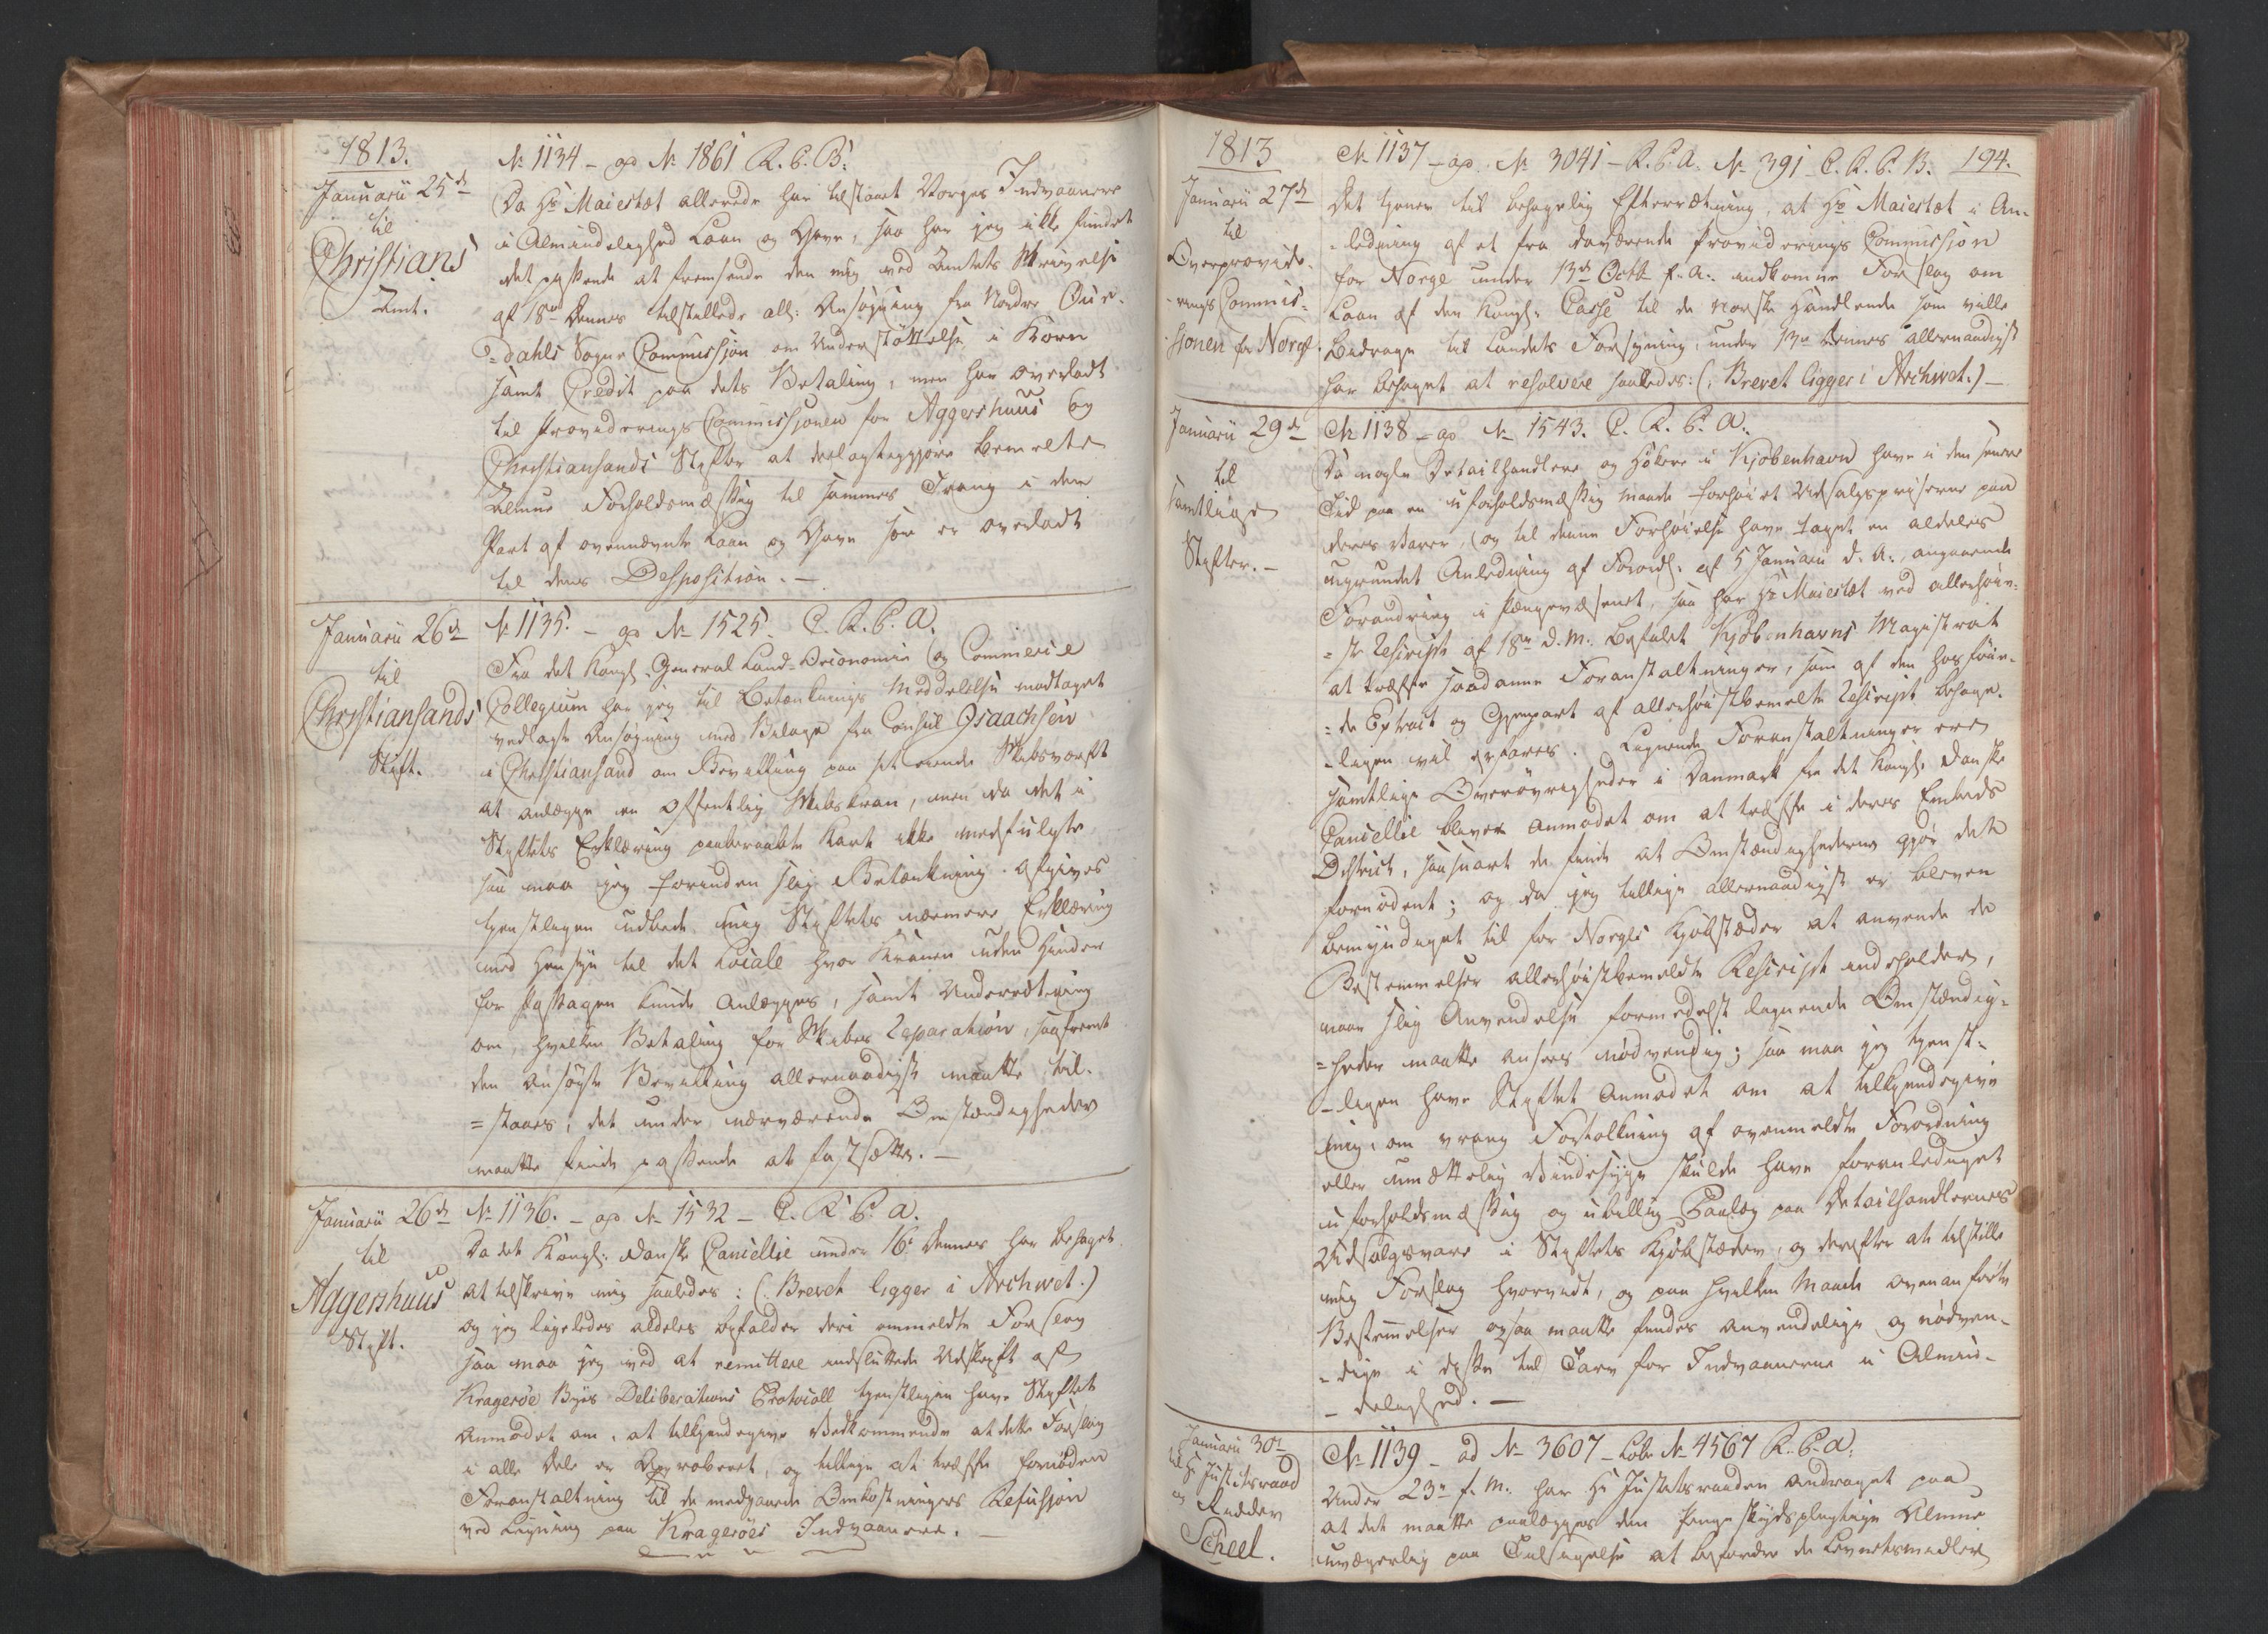 1813.
Januarii 25de
til
Christians
Amt.
No 1134 - ad No 1861 R. C. B:
Da Hs Maiestæt allerede har tilstaaet Norges Indvaanere
i Almindelighed Laan og Gave, saa har jeg ikke fundet
det passende at fremsende den mig ved Amtets Skrivelse
af 18de Dennes tilstillede all: Ansøgning fra Nordre
=dahls Sogne Commission om Understøttelse i Korn
samt Credit paa dets Betaling, men har overladt
til Providerings Commissionen for Aggershuus og
Christiansands Stifter at deelagtiggjøre bemelte
Almue Forholdsmæssig til sammes Trang i den
Part af ovennævnte Laan og Gave som er overladt
til dens Desposition. -
Januarii 26de
til
Christiansands
Stift.
No 1135. - ad No 1525. C. R. C. A.
Fra det Kongl. General Land-Oeconomie og Commerce
Collegium har jeg til Betænknings Meddelelse modtaget
vedlagte Ansøgning med Bilage fra Consul Isaachsen
i Christiansand om Bevilling paa sit eiende Skibsværft
at anlægge en offentlig Skibskran, men da det i
Stiftets Erklæring paaberaabte Kart ikke medfulgte
saa maa jeg forinden slig Betænkning afgives
tjenstligen udbede mig Stiftets nærmere Erklæring
med Hensyn til det Locale hvor Kranen uden Hinder
for Passagen kunde anlægges, samt Underretning
om, hvilken Betaling for Skibes Reparation, saafremt
den ansøgte Bevilling allernaadigst maatte til-
=staaes, det under nærværende Omstændigheder
maatte finde passende at fastsætte. -
Januarii 26de
til
Aggershuus
Stift.
No 1136. - ad No 1532 - C. R. C. a.
Da det Kongl: danske Cancellie under 16de dennes har behaget
at tilskrive mig saaledes: (: Brevet ligger i Archivet.)
og jeg ligeledes aldeles bifalder deri ommeldte Forslag
saa maa jeg ved at remittere indsluttede Udskrift af
Kragerøe Byes Deliberations Protocoll tjenstligen have Stiftet
anmodet om, at tilkjendegive Vedkommende at dette Forslag
i alle Dele er Approberet, og tillige at træffe fornøden
Foranstaltning til de medgaaende Omkostningers Refusion
ved Ligning paa Kragerøes Indvaanere. -
1813
Januarii 27de
til
Overprovide-
-rings Commis-
sionen for Norge.
No 1137 - ad No 3041 - R. C. A. No 391 - C. R. C. B. 194.
Det tjener til behagelig Efterretning, at Hs Maiestæt i An-
-ledning af et fra daværende Providerings Commission
for Norge under 13de Octb f. A. indkomne Forslag om
Laan af den Kongl. Casse til de norske Handlende som ville
bidrage til Landets Forsyning, under 13de Dennes allernaadigst
har behaget at resolvere saaledes: (: Brevet ligger i Archivet.) -
Januarii 29de
til
samtlige
Stifter. -
No 1138 - ad No 1543. C. R. C. A.
Da nogle Detailhandlere og Høkere i Kjøbenhavn have i den senere
Tid paa en uforholdsmæssig maade forhøiet Udsalgspriserne paa
deres Varer, og til denne Forhøielse have taget en aldeles
ugrundet Anledning af Forordn: af 5 Januarii d. A., angaaende
Forandring i Pengevæsenet, saa har Hs Maiestæt ved allerhøie-
=ste Rescript af 18de d. M. befalet Kjøbenhavns Magistrat
at træffe saadanne Foranstaltninger, som af den hosføie-
=de Extract og Gjenpart af allerhøistbemelte Rescript behage-
-ligen vil erfares. Lignende Foranstaltninger ere
samtlige Overøvrigheder i Danmark fra det Kongl. danske
Cancellie bleven anmodet om at træffe i deres Embeds
District, saasnart de finde at Omstændighederne gjør det
fornødent; og da jeg tillige allernaadigst er bleven
bemyndiget til for Norges Kjøbstæder at anvende de
Bestemmelser allerhøistbemeldte Rescript indeholder,
naar slig Anvendelse formedelst lignende Omstændig-
=heder maatte ansees nødvendig; saa maa jeg tjenst-
-ligen have Stiftet anmodet om at tilkjendegive
mig, om vrang Fortolkning af ovenmeldte Forordning
eller umættelig Vindesyge skulde have foranlediget
uforholdsmæssig og ubillig Paalæg paa Detailhandlernes
Udsalgsvare i Stiftets Kjøbstæder, og derefter at tilstille
mig Forslag hvorvidt, og paa hvilken Maade ovenanførte
Bestemmelser ogsaa maatte findes anvendelige og nødven-
-dige i disse til Tarv for Indvaanerne i Almin-
-delighed. -
Januarii 30te
til Hr Justitsraad
og Ridder
Scheel.
No 1139 - ad No 3607 - Løbe No 4567 R. C. A.
Under 23de f. M. har Hr Justitsraaden andraget paa
at det maatte paalægges den skydspligtige Almue
uvægerlig paa Tilsigelse at befordre de Levnetsmidler